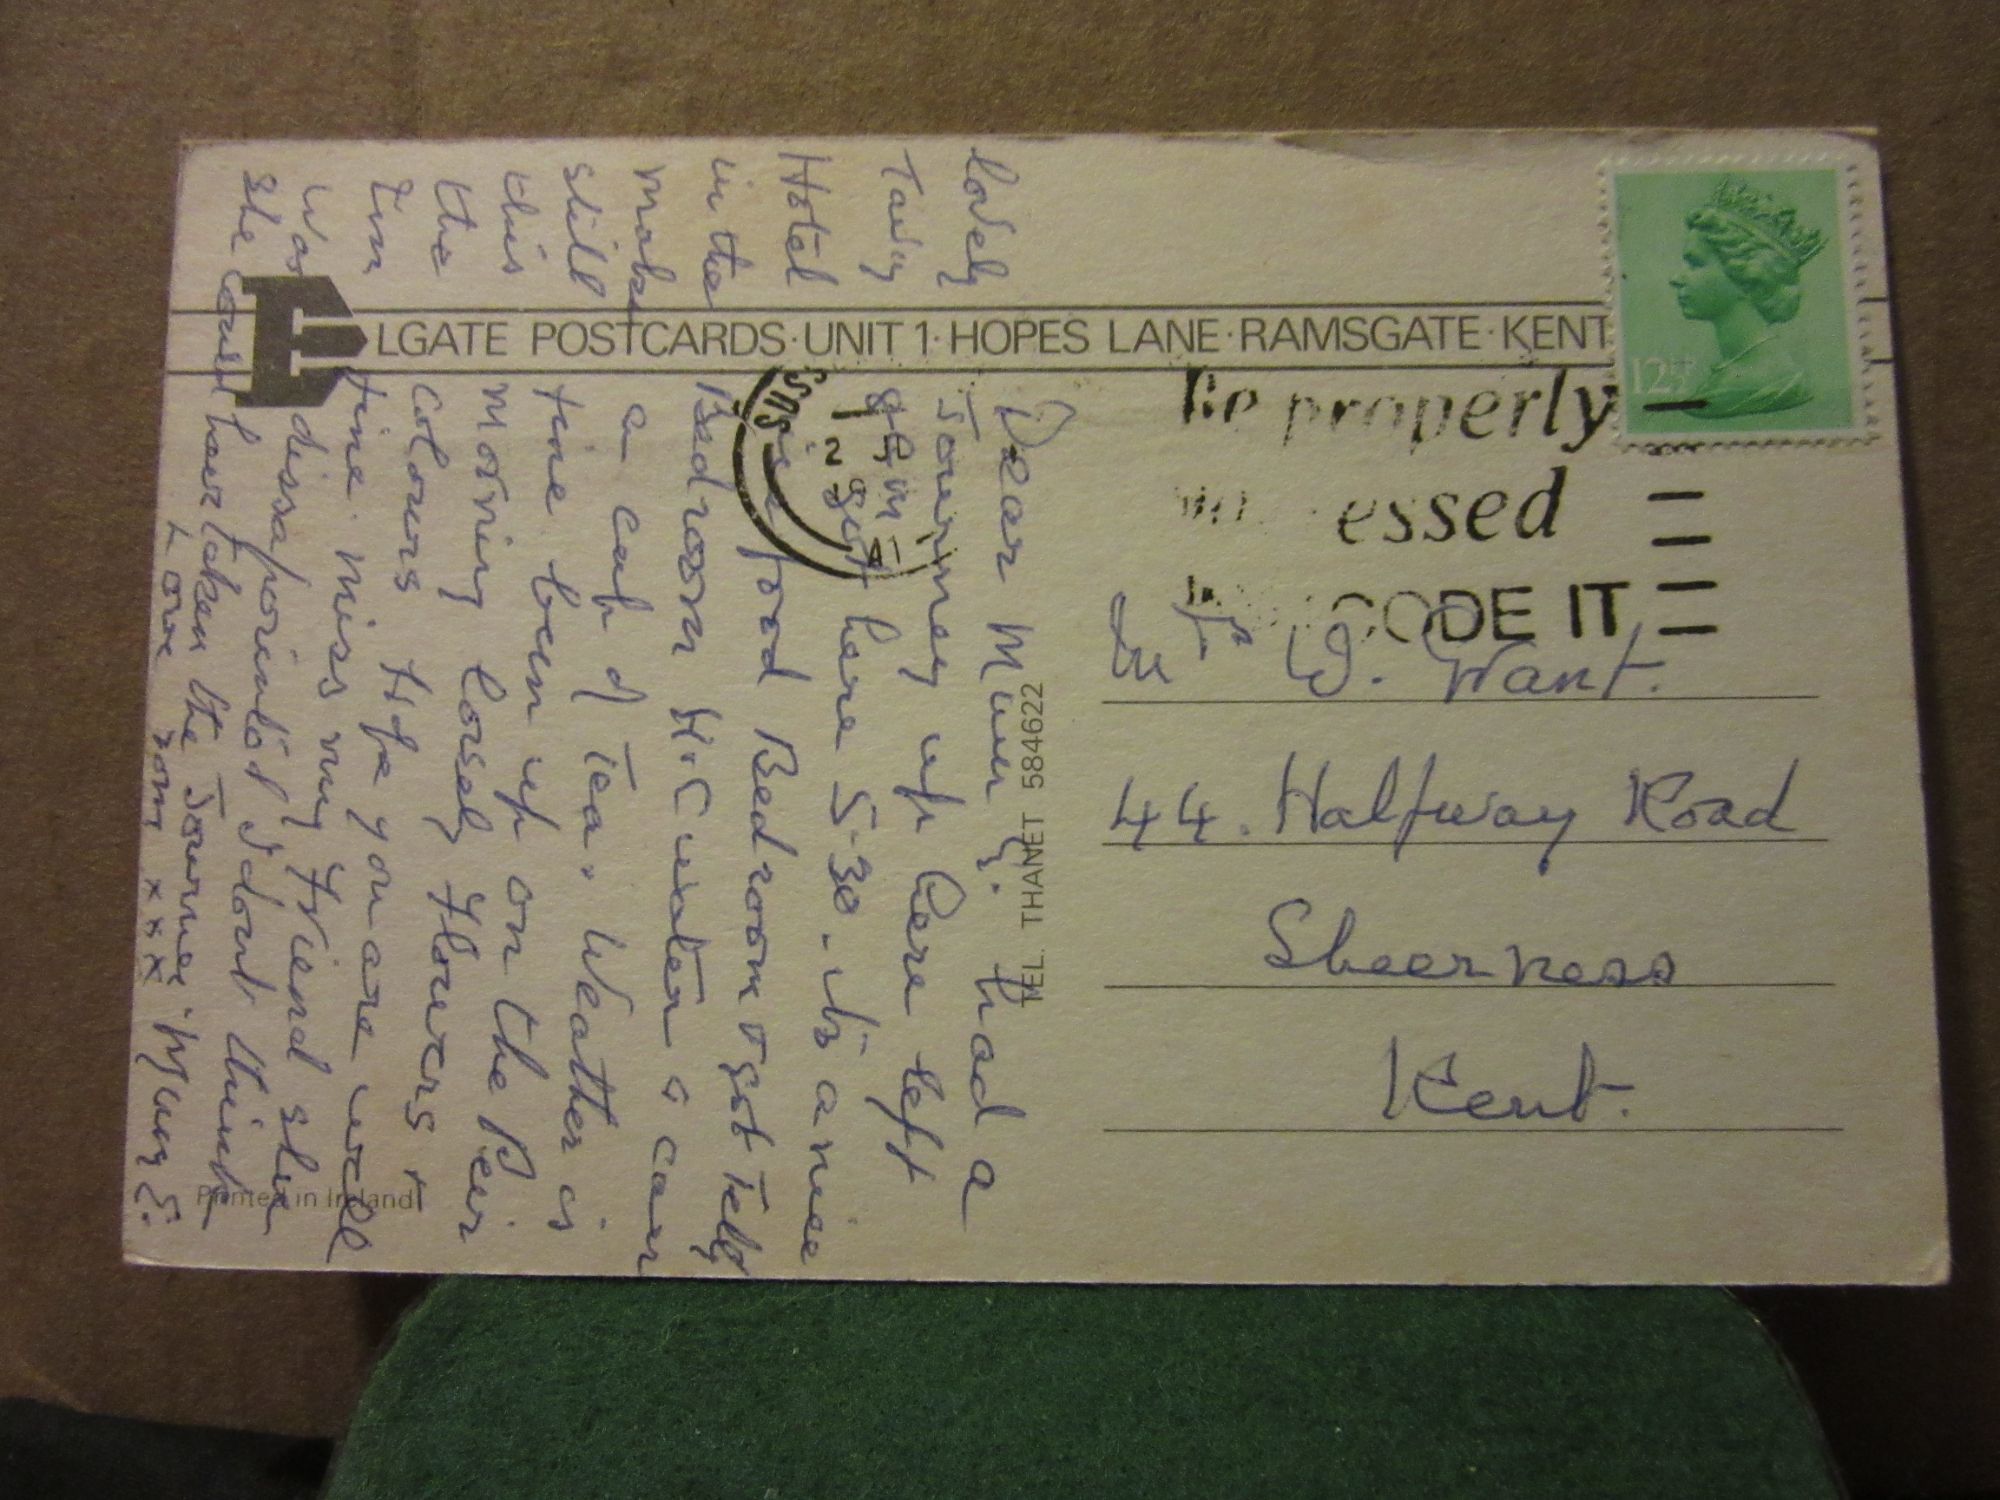 ELGATE POSTCARDS · UNIT 1 · HOPES LANE · RAMSGATE · KENT
TEL. THANET 584622
Printed in Ireland
12½P
SUSS
Be properly
essed
CODE IT
W. Want.
44. Halfway Road
Sheerness
Kent.
Dear Mum S. had a
lovely Journey up Here left
9am got here 5-30. its a nice
Hotel nice food Bedroom
in the Bedroom H+C water & can
make a cup of Tea. Weather is
still fine been up on the Peir
this morning lovely Flowers +
the colours Hope you are well
fine. miss my Friend she
was dissapointed I dont think
she could have taken the Journey
Love xxx Mum S.